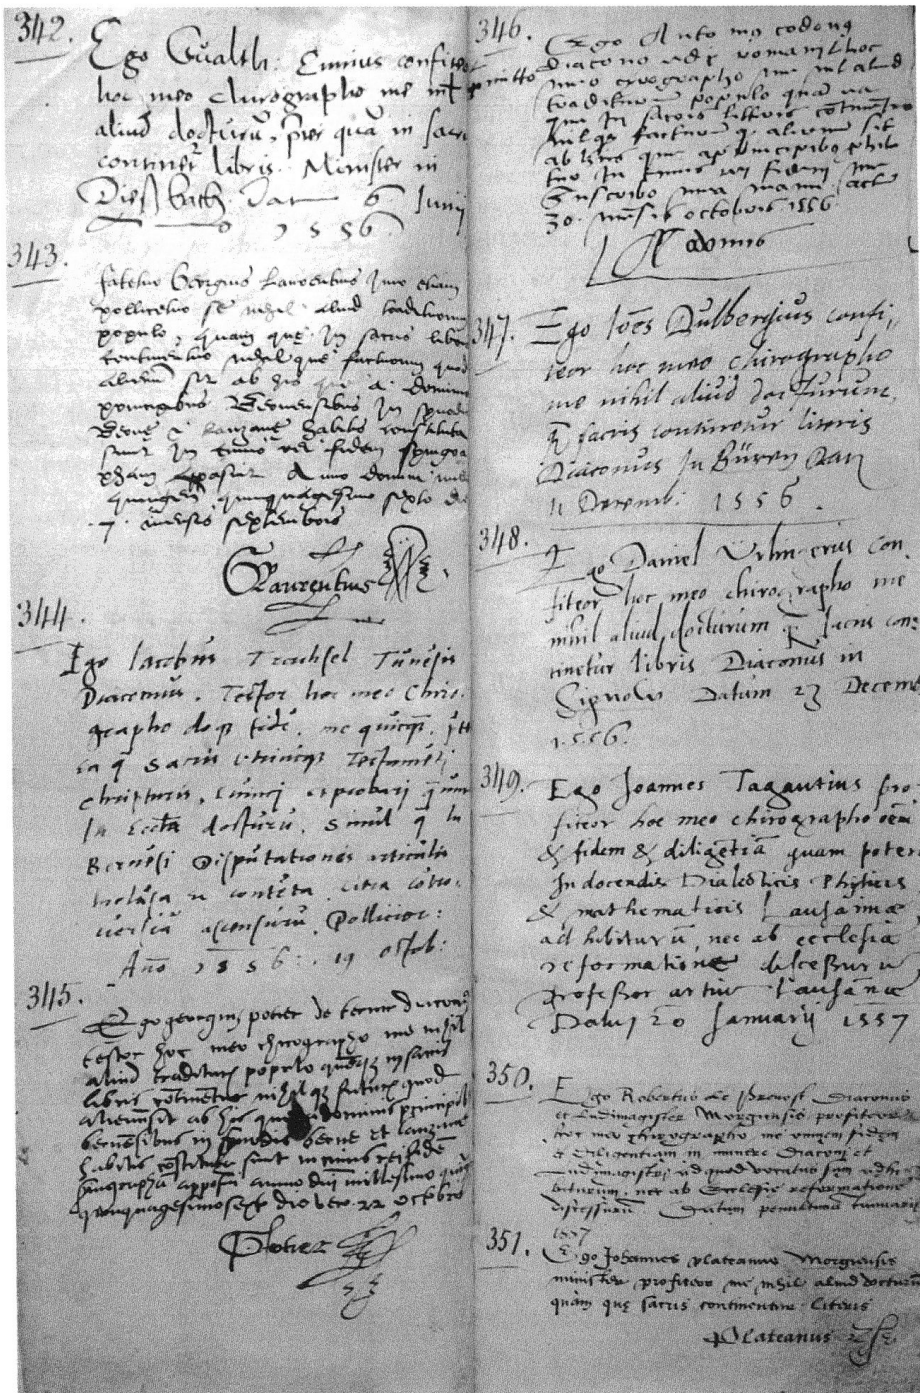 342.
Ego Gualth: Ennius confiteor
hoc meo chirographo me nihil
aliud docturũ, preter quã in sacris
continetr libris. Minister in
Diesbach. Dat 6 Junij
1556
343.
fateor Georgius Laurentius Imo etiam
polliceor se nihil aliud traditurum
populo, quam quę in sacris libris
continentur nihil que facturum quod
alienũ sit ab his quę a dominis
principibus Bernensibus in synodis
Bernę & Lauzanę habitis constituta
sunt in cuius rei fidem syngra
pham apposui Anno domini mill
quingen quinquagesimo sexto die
.7. mensis septembris
Laurentius
344.
Ego Iacobus Trachsel Tunesis
Diaconus. Testor hoc meo Chiro
grapho doq fidẽ, me quicq
ea q sacris utriusq Testamẽti
scripturis,
In Eccla docturũ. Simul q in
Bernẽsi Disputationis articulis
contẽta citra cõtro.
versiã assensurũ Pollicior:
Año 1556: . 19 octob:
345.
Ego georgius potier de diaconus
testor hoc meo chirographo me nihil
aliud traditurũ populo quã quę in sacris
libris cõtinentur nihilqz facturũ quod
alienũ sit ab his que a dominis principib
bernẽsibus in synodis berne et lauzane
habitis cõstituta sunt in cuius rei fidẽ
syngraphã apposui anno dñi millesimo quin
quinquagesimosexto die vero 22 octobris
Potier
346.
Ego Anto
diacono romani hoc
meo cirographo me nihil aliud
traditurum populo quam ea
que in sacris litteris continentur
nihilqz facturum q. alienum sit
ab his que a principibus
in cuius rei fidem me
suscribo mea manu. act
30. mensis octobris 1556
347.
Ego Ioẽs Dulbergius confi,,
teor hoc meo chirographo
me nihil aliud docturum,
q̃ sacris continetur literis
Diaconus In Büren Dat
11 Decemb: 1556.
348.
Ego Daniel con
fiteor hoc meo chirographo me
nihil aliud docturum q̃ sacris con-
tinetur libris Diaconus in
Signow Datum 23 Decemb
1556.
349.
Ego Joannes Tagautius pro-
fiteor hoc meo chirographo oẽm
& fidem & diligẽtiã quam potero
In docendis Dialecticis Phisicis
& mathematicis Lausannæ
adhibiturũ, nec ab ecclesiæ
reformatione discessurũ
Professor artiũ Lausãnæ
Datũ 20 Januarij 1557
350.
Ego Robertus de Prevost Diaconus
et Ludimagister Morgiensis profiteor
hoc meo chirographo me omnem fidem
& diligentiam in munere Diaconj et
Ludimagistrj ad quod vocatus sum adhi-
biturum, nec ab Ecclesiæ reformatione
discessurũ Datum penultima Januarij
1557
351.
Ego Johannes plateanus Morgiensis
minister profiteor me nihil aliud docturũ
quàm quę sacris continentur literis
Plateanus